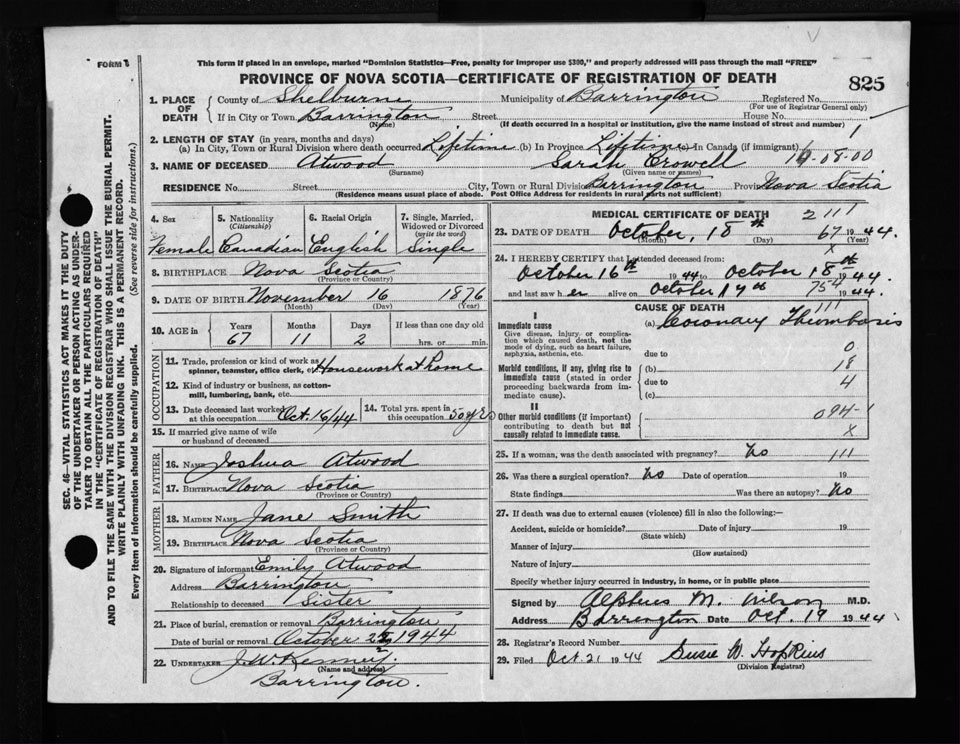 FORM
This form if placed in an envelope, marked "Dominion Statistics—Free, penalty for improper use $300," and properly addressed will pass through the mail "FREE"
PROVINCE OF NOVA SCOTIA—CERTIFICATE OF REGISTRATION OF DEATH
825
1. PLACE OF DEATH
County of Shelburne Municipality of Barrington Registered No.
(For use of Registrar General only)
If in City or Town Barrington Street House No.
(Name) (If death occurred in a hospital or institution, give the name instead of street and number)
2. LENGTH OF STAY (in years, months and days)
(a) In City, Town or Rural Division where death occurred Lifetime (b) In Province Lifetime (c) In Canada (if immigrant)
3. NAME OF DECEASED Atwood Sarah Crowell
(Surname) (Given name or names)
RESIDENCE No. Street City, Town or Rural Division Barrington Province Nova Scotia
(Residence means usual place of abode. Post Office Address for residents in rural parts not sufficient)
SEC. 46—VITAL STATISTICS ACT MAKES IT THE DUTY
OF THE UNDERTAKER OR PERSON ACTING AS UNDER-
TAKER TO OBTAIN ALL THE PARTICULARS REQUIRED
IN THE "CERTIFICATE OF REGISTRATION OF DEATH"
AND TO FILE THE SAME WITH THE DIVISION REGISTRAR WHO SHALL ISSUE THE BURIAL PERMIT.
WRITE PLAINLY WITH UNFADING INK. THIS IS A PERMANENT RECORD.
Every item of information should be carefully supplied. (See reverse side for instructions.)
4. Sex 5. Nationality (Citizenship) 6. Racial Origin 7. Single, Married, Widowed or Divorced (write the word)
Female Canadian English Single
8. BIRTHPLACE Nova Scotia
(Province or Country)
9. DATE OF BIRTH November 16 1876
(Month) (Day) (Year)
10. AGE in Years Months Days If less than one day old
67 11 2 hrs. or min.
OCCUPATION
11. Trade, profession or kind of work as spinner, teamster, office clerk, etc. Housework at home
12. Kind of industry or business, as cotton-mill, lumbering, bank, etc.
13. Date deceased last worked at this occupation Oct. 16/44 14. Total yrs. spent in this occupation 50 yrs
15. If married give name of wife or husband of deceased
FATHER
16. NAME Joshua Atwood
17. BIRTHPLACE Nova Scotia
(Province or Country)
MOTHER
18. MAIDEN NAME Jane Smith
19. BIRTHPLACE Nova Scotia
(Province or Country)
20. Signature of informant Emily Atwood
Address Barrington
Relationship to deceased Sister
21. Place of burial, cremation or removal Barrington
Date of burial or removal October 1944
22. UNDERTAKER J. W. Kenney.
(Name and address)
Barrington.
MEDICAL CERTIFICATE OF DEATH 2111
23. DATE OF DEATH October, 18th 67 1944.
(Month) (Day) (Year)
X
24. I HEREBY CERTIFY that I attended deceased from:
October 16th 1944 to October 18th 1944
and last saw her alive on October 17th 754 1944.
CAUSE OF DEATH 111
I
Immediate cause (a) Coronary Thrombosis
Give disease, injury or complication which caused death, not the mode of dying, such as heart failure, asphyxia, asthenia, etc.
due to 0
Morbid conditions, if any, giving rise to immediate cause (stated in order proceeding backwards from immediate cause).
(b) 18
due to 4
(c)
II
Other morbid conditions (if important) contributing to death but not causally related to immediate cause.
094-1
X
25. If a woman, was the death associated with pregnancy? No 111
26. Was there a surgical operation? No Date of operation 19
State findings Was there an autopsy? No
27. If death was due to external causes (violence) fill in also the following:—
Accident, suicide or homicide? Date of injury 19
(State which)
Manner of injury
(How sustained)
Nature of injury
Specify whether injury occurred in industry, in home, or in public place
Signed by Alpheus M. Wilson M.D.
Address Barrington Date Oct. 19 1944
28. Registrar's Record Number
29. Filed Oct. 21 1944 Susie W. Hopkins
(Division Registrar)